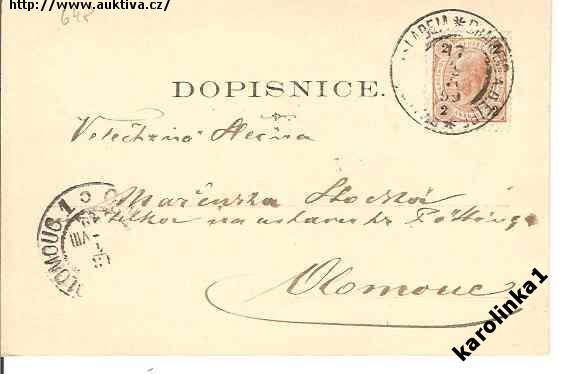 http://www.auktiva.cz/
648
DOPISNICE.
Velectěná Slečna
Mařenka
učitelka na ústavu hr. Pöttinga
Olomouc
OLOMOUC 1
karolinka1